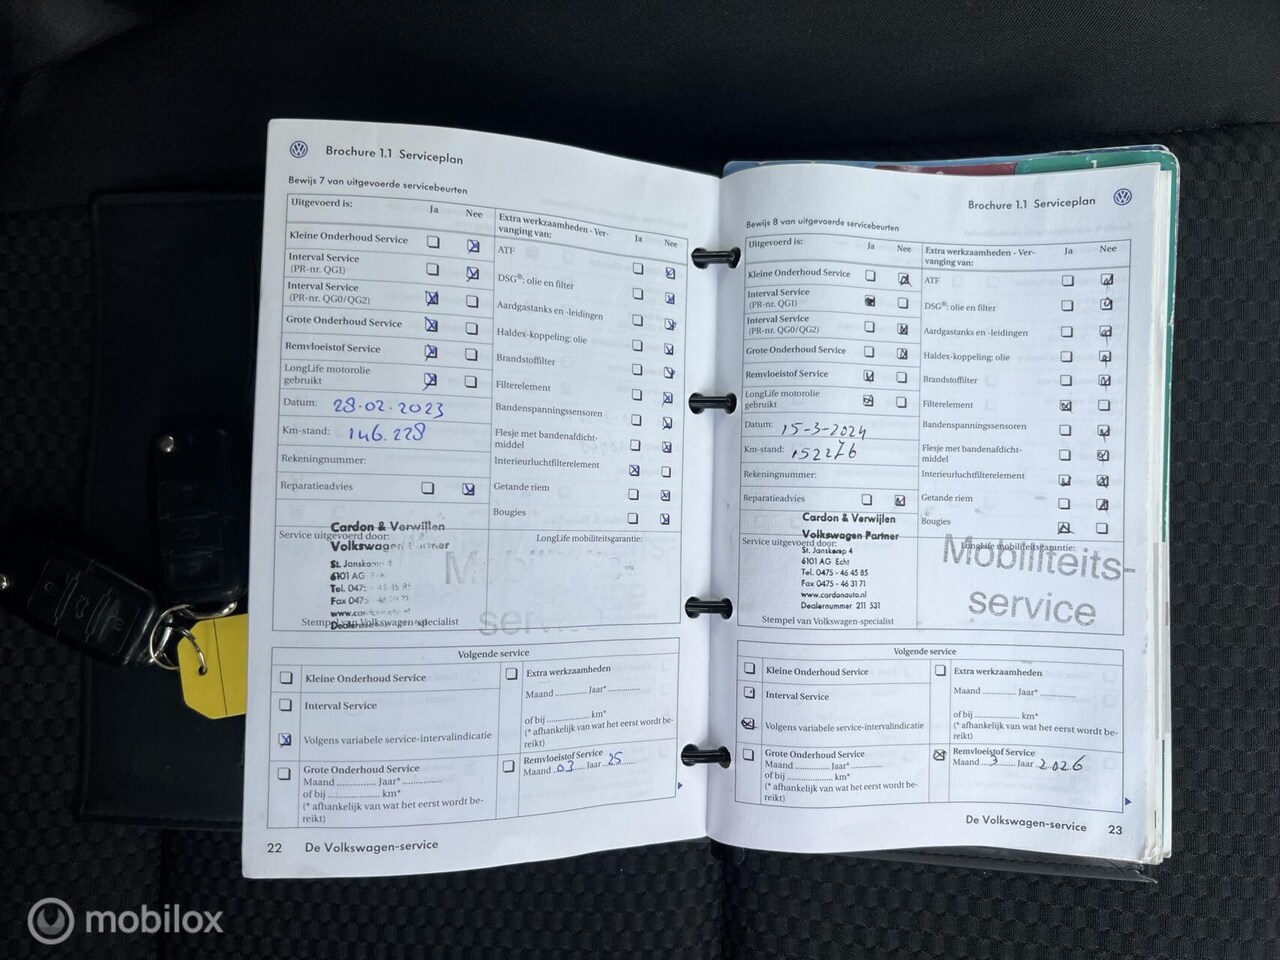 Brochure 1.1 Serviceplan
Bewijs 7 van uitgevoerde servicebeurten
Uitgevoerd is: Ja Nee
Kleine Onderhoud Service
Interval Service
(PR-nr. QG1)
Interval Service
(PR-nr. QG0/QG2)
Grote Onderhoud Service
Remvloeistof Service
LongLife motorolie
gebruikt
Datum: 28-02-2023
Km-stand: 146.228
Rekeningnummer:
Reparatieadvies
Extra werkzaamheden - Ver-
vanging van: Ja Nee
ATF
DSG®: olie en filter
Aardgastanks en -leidingen
Haldex-koppeling: olie
Brandstoffilter
Filterelement
Bandenspanningssensoren
Flesje met bandenafdicht-
middel
Interieurluchtfilterelement
Getande riem
Bougies
Cardon & Verwijlen
Service uitgevoerd door:
Volkswagen
St. Janskamp 4
6101 AG
Tel. 0475
Fax 0475
Stempel van Volkswagen-specialist
LongLife mobiliteitsgarantie:
service
Volgende service
Kleine Onderhoud Service
Interval Service
Volgens variabele service-intervalindicatie
Grote Onderhoud Service
Maand Jaar*
of bij km*
(* afhankelijk van wat het eerst wordt be-
reikt)
Extra werkzaamheden
Maand Jaar*
of bij km*
(* afhankelijk van wat het eerst wordt be-
reikt)
Remvloeistof Service
Maand 03 Jaar 25
22 De Volkswagen-service
Brochure 1.1 Serviceplan
Bewijs 8 van uitgevoerde servicebeurten
Uitgevoerd is: Ja Nee
Kleine Onderhoud Service
Interval Service
(PR-nr. QG1)
Interval Service
(PR-nr. QG0/QG2)
Grote Onderhoud Service
Remvloeistof Service
LongLife motorolie
gebruikt
Datum: 15-3-2024
Km-stand: 152276
Rekeningnummer:
Reparatieadvies
Extra werkzaamheden - Ver-
vanging van: Ja Nee
ATF
DSG®: olie en filter
Aardgastanks en -leidingen
Haldex-koppeling: olie
Brandstoffilter
Filterelement
Bandenspanningssensoren
Flesje met bandenafdicht-
middel
Interieurluchtfilterelement
Getande riem
Bougies
Cardon & Verwijlen
Volkswagen Partner
Service uitgevoerd door:
St. Janskamp 4
6101 AG Echt
Tel. 0475 - 46 45 85
Fax 0475 - 46 31 71
www.cardonauto.nl
Dealernummer 211 531
Stempel van Volkswagen-specialist
LongLife mobiliteitsgarantie:
Mobiliteits-
service
Volgende service
Kleine Onderhoud Service
Interval Service
Volgens variabele service-intervalindicatie
Grote Onderhoud Service
Maand Jaar*
of bij km*
(* afhankelijk van wat het eerst wordt be-
reikt)
Extra werkzaamheden
Maand Jaar*
of bij km*
(* afhankelijk van wat het eerst wordt be-
reikt)
Remvloeistof Service
Maand 3 Jaar 2026
De Volkswagen-service 23
mobilox